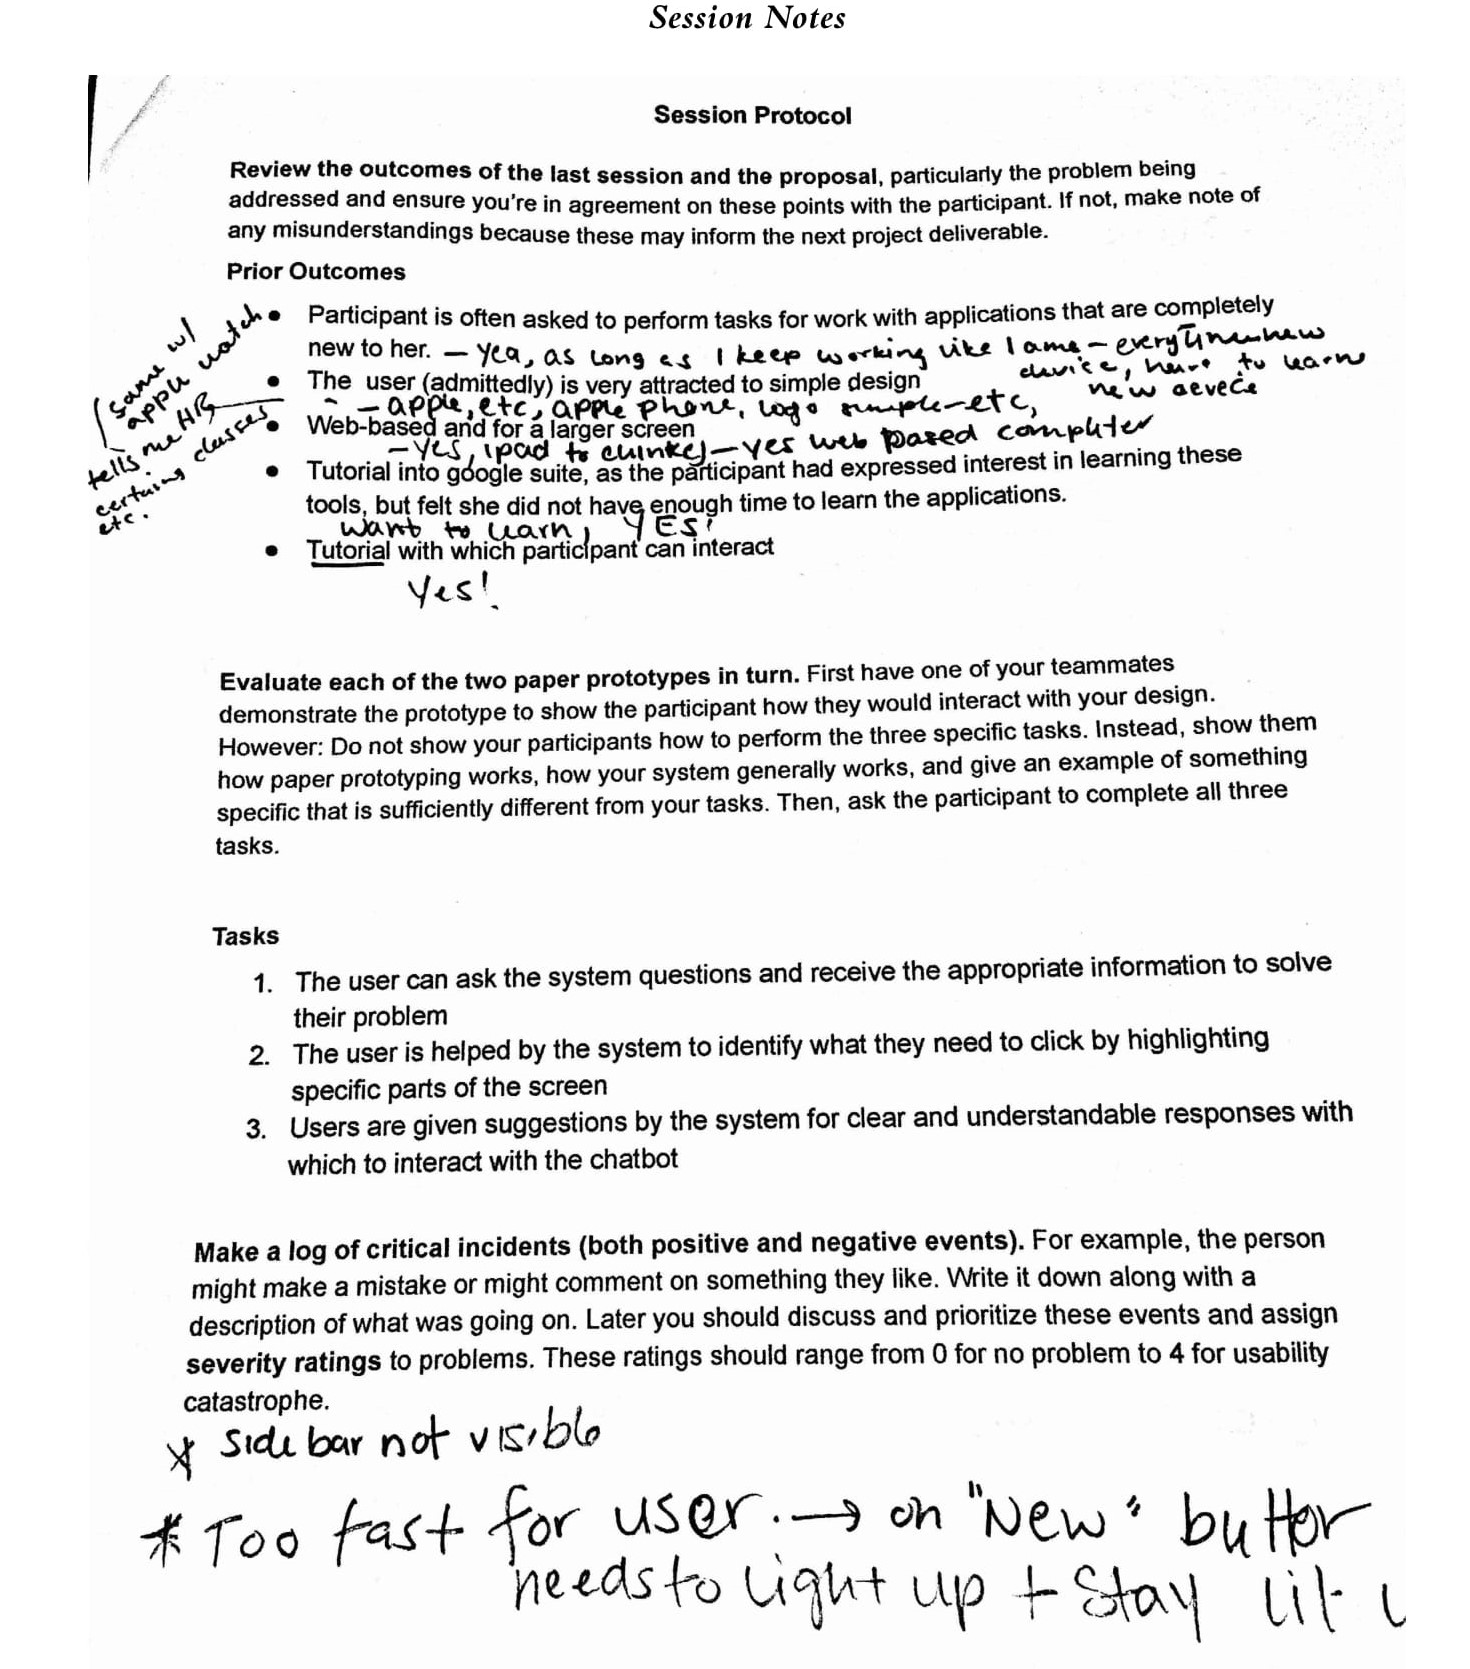 Session Notes
Session Protocol
Review the outcomes of the last session and the proposal, particularly the problem being
addressed and ensure you're in agreement on these points with the participant. If not, make note of
any misunderstandings because these may inform the next project deliverable.
Prior Outcomes
same w/
apple watch
tells me HR
certains classes
etc.
• Participant is often asked to perform tasks for work with applications that are completely
new to her. – yea, as long as I keep working like I am – everytime new
device, have to learn
new device
• The user (admittedly) is very attracted to simple design
– apple, etc, apple phone, logo simple – etc,
• Web-based and for a larger screen
– Yes, ipad to – yes web based computer
• Tutorial into google suite, as the participant had expressed interest in learning these
tools, but felt she did not have enough time to learn the applications.
want to learn, YES!
• Tutorial with which participant can interact
Yes!
Evaluate each of the two paper prototypes in turn. First have one of your teammates
demonstrate the prototype to show the participant how they would interact with your design.
However: Do not show your participants how to perform the three specific tasks. Instead, show them
how paper prototyping works, how your system generally works, and give an example of something
specific that is sufficiently different from your tasks. Then, ask the participant to complete all three
tasks.
Tasks
1. The user can ask the system questions and receive the appropriate information to solve
their problem
2. The user is helped by the system to identify what they need to click by highlighting
specific parts of the screen
3. Users are given suggestions by the system for clear and understandable responses with
which to interact with the chatbot
Make a log of critical incidents (both positive and negative events). For example, the person
might make a mistake or might comment on something they like. Write it down along with a
description of what was going on. Later you should discuss and prioritize these events and assign
severity ratings to problems. These ratings should range from 0 for no problem to 4 for usability
catastrophe.
* side bar not visible
* Too fast for user. → on "New" button
needs to light up + stay lit